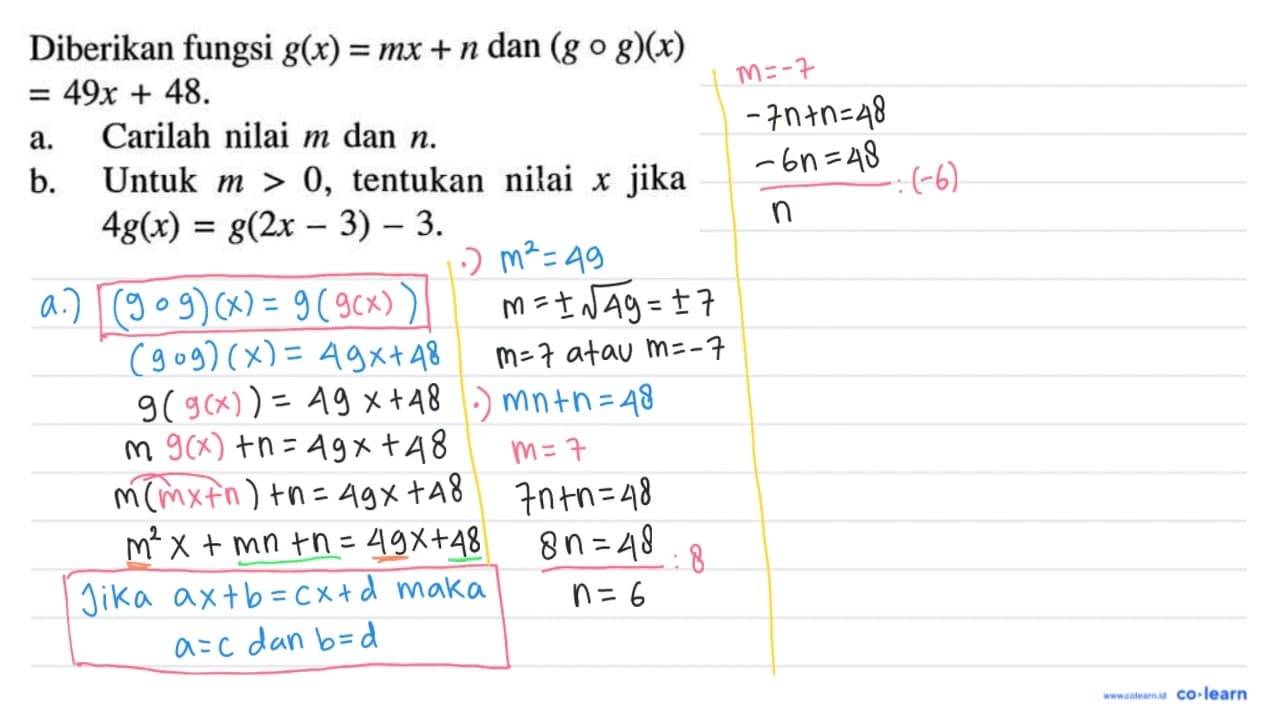 Diberikan fungsi g(x) = mx + n dan (g ∘ g)(x)
= 49x + 48.
a. Carilah nilai m dan n.
b. Untuk m > 0, tentukan nilai x jika
4g(x) = g(2x − 3) − 3.
a.) (g ∘ g)(x) = g(g(x))
(g∘g)(x) = 49x+48
g(g(x)) = 49x+48
m g(x) +n = 49x+48
m(mx+n)+n = 49x+48
m²x + mn +n = 49x+48
Jika ax+b = cx+d maka
a=c dan b=d
·) m² = 49
m = ±√49 = ±7
m=7 atau m=-7
·) mn+n = 48
m = 7
7n+n = 48
8n = 48 : 8
n = 6
m = -7
-7n+n = 48
-6n = 48 : (-6)
n
www.colearn.id co·learn